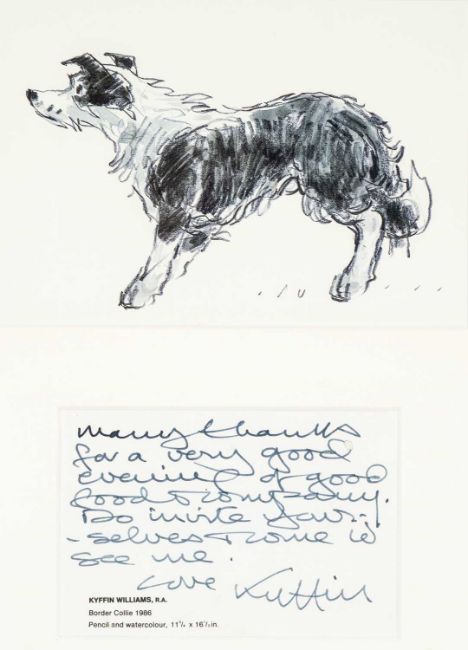 many thanks
for a very good
evening of good
food & company.
Do invite your-
-selves & come to
see me.
love Kyffin
KYFFIN WILLIAMS, R.A.
Border Collie 1986
Pencil and watercolour, 11¾ × 16½ in.